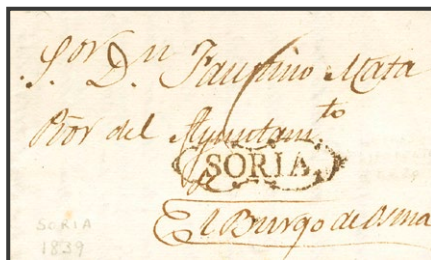 S.or D.n Faustino Mata
Rōr del Ayuntam.to
SORIA
de
El Burgo de Osma
SORIA
1839